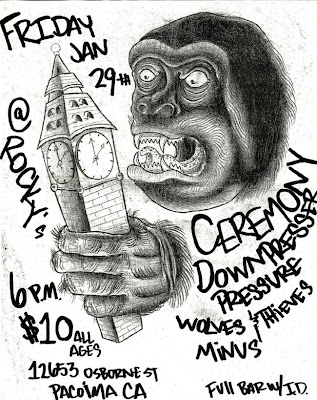 FRIDAY
JAN
29TH
@ ROCKY's
CEREMONY
DOWNPRESSER
PRESSURE
WOLVES & THIEVES
MINUS
6 P.M.
$10 ALL AGES
12653 OSBORNE ST
PACOIMA CA
FULL BAR W/ I.D.